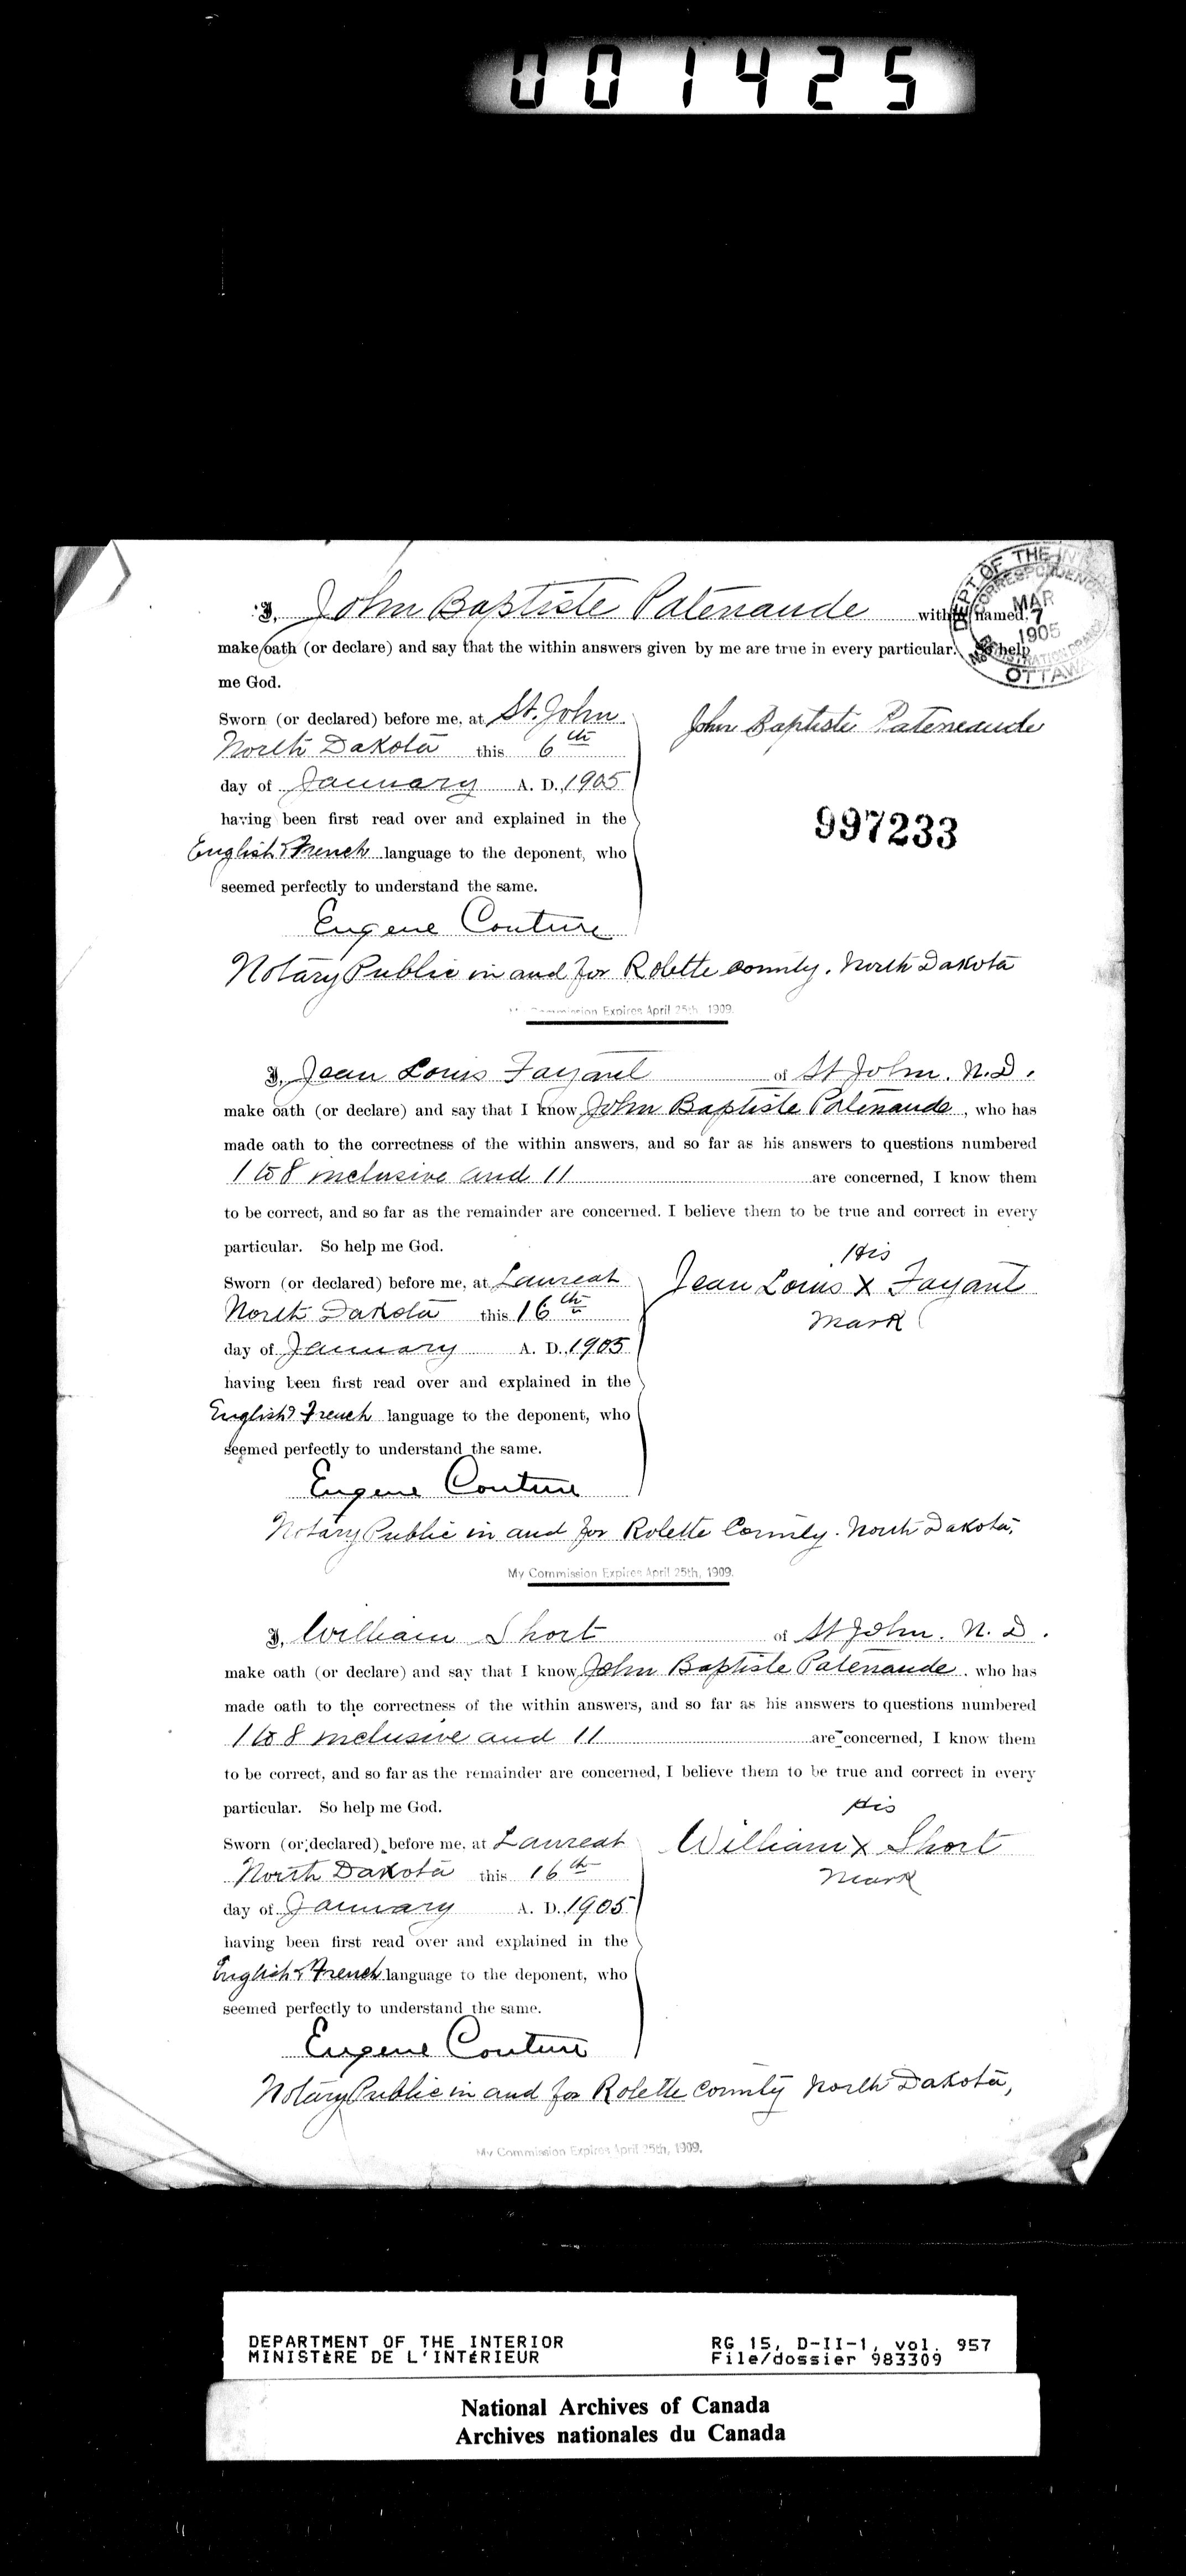 001425
I, John Baptiste Patenaude within named,
make oath (or declare) and say that the within answers given by me are true in every particular. So help
me God.
DEPT OF THE INTERIOR
CORRESPONDENCE
MAR
7
1905
REGISTRATION BRANCH
OTTAWA
Sworn (or declared) before me, at St. John
North Dakota this 6th
day of January A. D. 1905
having been first read over and explained in the
English & French language to the deponent, who
seemed perfectly to understand the same.
John Baptiste Pateneaude
997233
Eugene Couture
Notary Public in and for Rolette county. North Dakota
My Commission Expires April 25th, 1909.
I, Jean Louis Fayant of St John. N.D.
make oath (or declare) and say that I know John Baptiste Patenaude, who has
made oath to the correctness of the within answers, and so far as his answers to questions numbered
1 to 8 inclusive and 11 are concerned, I know them
to be correct, and so far as the remainder are concerned, I believe them to be true and correct in every
particular. So help me God.
Sworn (or declared) before me, at Laureat
North Dakota this 16th
day of January A. D. 1905
having been first read over and explained in the
English & French language to the deponent, who
seemed perfectly to understand the same.
His
Jean Louis X Fayant
mark
Eugene Couture
Notary Public in and for Rolette County. North Dakota.
My Commission Expires April 25th, 1909.
I, William Short of St John. N. D.
make oath (or declare) and say that I know John Baptiste Patenaude, who has
made oath to the correctness of the within answers, and so far as his answers to questions numbered
1 to 8 inclusive and 11 are concerned, I know them
to be correct, and so far as the remainder are concerned, I believe them to be true and correct in every
particular. So help me God.
Sworn (or declared) before me, at Laureat
North Dakota this 16th
day of January A. D. 1905
having been first read over and explained in the
English & French language to the deponent, who
seemed perfectly to understand the same.
His
William X Short
mark
Eugene Couture
Notary Public in and for Rolette County North Dakota,
My Commission Expires April 25th, 1909.
DEPARTMENT OF THE INTERIOR
MINISTÈRE DE L'INTÉRIEUR
RG 15, D-II-1, vol. 957
File/dossier 983309
National Archives of Canada
Archives nationales du Canada